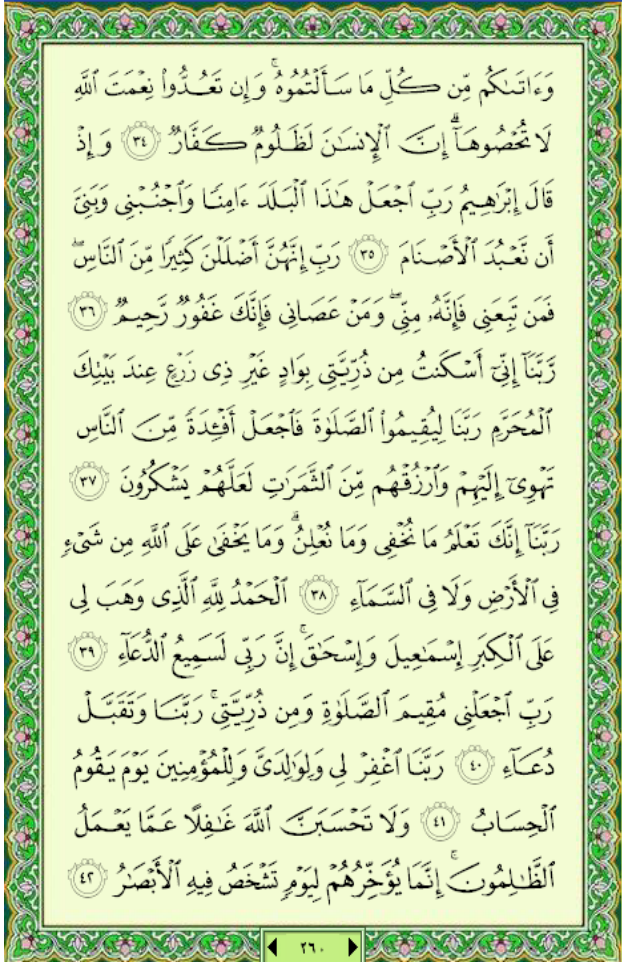 وَءَاتَىٰكُم مِّن كُلِّ مَا سَأَلْتُمُوهُ ۚ وَإِن تَعُدُّوا۟ نِعْمَتَ ٱللَّهِ
لَا تُحْصُوهَآ ۗ إِنَّ ٱلْإِنسَـٰنَ لَظَلُومٌ كَفَّارٌ ٣٤ وَإِذْ
قَالَ إِبْرَٰهِيمُ رَبِّ ٱجْعَلْ هَـٰذَا ٱلْبَلَدَ ءَامِنًا وَٱجْنُبْنِى وَبَنِىَّ
أَن نَّعْبُدَ ٱلْأَصْنَامَ ٣٥ رَبِّ إِنَّهُنَّ أَضْلَلْنَ كَثِيرًا مِّنَ ٱلنَّاسِ ۖ
فَمَن تَبِعَنِى فَإِنَّهُۥ مِنِّى ۖ وَمَنْ عَصَانِى فَإِنَّكَ غَفُورٌ رَّحِيمٌ ٣٦
رَّبَّنَآ إِنِّىٓ أَسْكَنتُ مِن ذُرِّيَّتِى بِوَادٍ غَيْرِ ذِى زَرْعٍ عِندَ بَيْتِكَ
ٱلْمُحَرَّمِ رَبَّنَا لِيُقِيمُوا۟ ٱلصَّلَوٰةَ فَٱجْعَلْ أَفْـِٔدَةً مِّنَ ٱلنَّاسِ
تَهْوِىٓ إِلَيْهِمْ وَٱرْزُقْهُم مِّنَ ٱلثَّمَرَٰتِ لَعَلَّهُمْ يَشْكُرُونَ ٣٧
رَبَّنَآ إِنَّكَ تَعْلَمُ مَا نُخْفِى وَمَا نُعْلِنُ ۗ وَمَا يَخْفَىٰ عَلَى ٱللَّهِ مِن شَىْءٍ
فِى ٱلْأَرْضِ وَلَا فِى ٱلسَّمَآءِ ٣٨ ٱلْحَمْدُ لِلَّهِ ٱلَّذِى وَهَبَ لِى
عَلَى ٱلْكِبَرِ إِسْمَـٰعِيلَ وَإِسْحَـٰقَ ۚ إِنَّ رَبِّى لَسَمِيعُ ٱلدُّعَآءِ ٣٩
رَبِّ ٱجْعَلْنِى مُقِيمَ ٱلصَّلَوٰةِ وَمِن ذُرِّيَّتِى ۚ رَبَّنَا وَتَقَبَّلْ
دُعَآءِ ٤٠ رَبَّنَا ٱغْفِرْ لِى وَلِوَٰلِدَىَّ وَلِلْمُؤْمِنِينَ يَوْمَ يَقُومُ
ٱلْحِسَابُ ٤١ وَلَا تَحْسَبَنَّ ٱللَّهَ غَـٰفِلًا عَمَّا يَعْمَلُ
ٱلظَّـٰلِمُونَ ۚ إِنَّمَا يُؤَخِّرُهُمْ لِيَوْمٍ تَشْخَصُ فِيهِ ٱلْأَبْصَـٰرُ ٤٢
٢٦٠